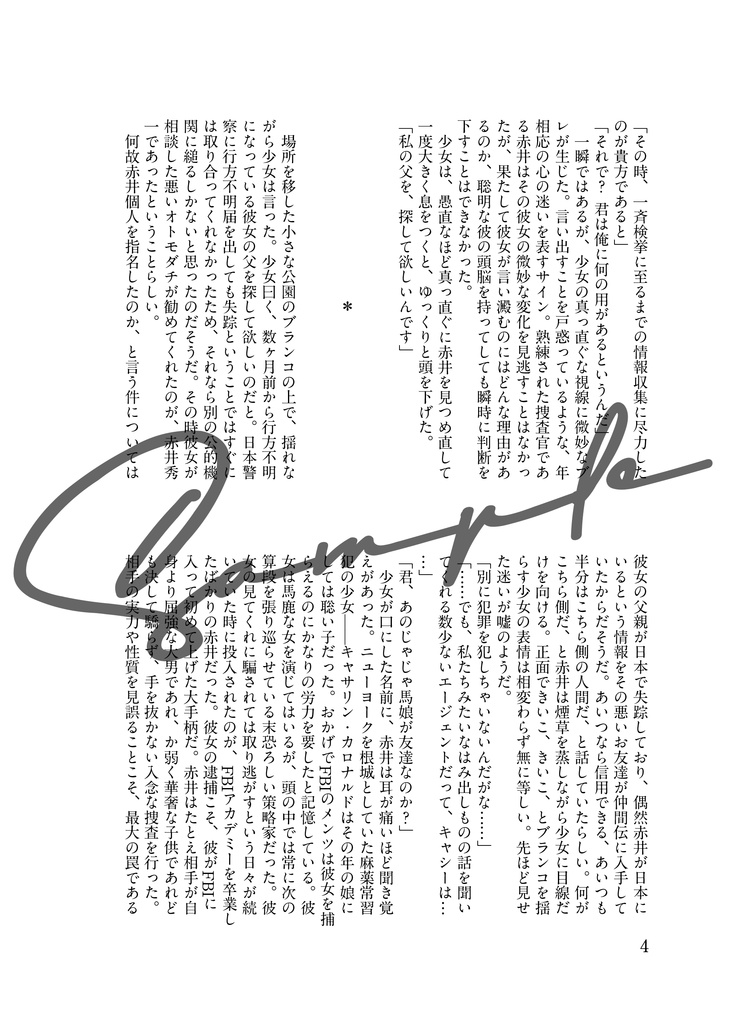 「その時、一斉検挙に至るまでの情報収集に尽力した
のが貴方であると」
「それで？　君は俺に何の用があるというんだ」
　一瞬ではあるが、少女の真っ直ぐな視線に微妙なブ
レが生じた。言い出すことを戸惑っているような、年
相応の心の迷いを表すサイン。熟練された捜査官であ
る赤井はその彼女の微妙な変化を見逃すことはなかっ
たが、果たして彼女が言い澱むのにはどんな理由があ
るのか、聡明な彼の頭脳を持ってしても瞬時に判断を
下すことはできなかった。
　少女は、愚直なほど真っ直ぐに赤井を見つめ直して
一度大きく息をつくと、ゆっくりと頭を下げた。
「私の父を、探して欲しいんです」
＊
　場所を移した小さな公園のブランコの上で、揺れな
がら少女は言った。少女曰く、数ヶ月前から行方不明
になっている彼女の父を探して欲しいのだと。日本警
察に行方不明届を出しても失踪ということではすぐに
は取り合ってくれなかったため、それなら別の公的機
関に縋るしかないと思ったのだそうだ。その時彼女が
相談した悪いオトモダチが勧めてくれたのが、赤井秀
一であったということらしい。
　何故赤井個人を指名したのか、と言う件については
彼女の父親が日本で失踪しており、偶然赤井が日本に
いるという情報をその悪いお友達が仲間伝に入手して
いたからだそうだ。あいつなら信用できる、あいつも
半分はこちら側の人間だ、と話していたらしい。何が
こちら側だ、と赤井は煙草を蒸しながら少女に目線だ
けを向ける。正面できいこ、きいこ、とブランコを揺
らす少女の表情は相変わらず無に等しい。先ほど見せ
た迷いが嘘のようだ。
「別に犯罪を犯しちゃいないんだがな……」
「……でも、私たちみたいなはみ出しものの話を聞い
てくれる数少ないエージェントだって、キャシーは…
…」
「君、あのじゃじゃ馬娘が友達なのか？」
　少女が口にした名前に、赤井は耳が痛いほど聞き覚
えがあった。ニューヨークを根城としていた麻薬常習
犯の少女――キャサリン・カロナルドはその年の娘に
しては聡い子だった。おかげでFBIのメンツは彼女を捕
らえるのにかなりの労力を要したと記憶している。彼
女は馬鹿な女を演じてはいるが、頭の中では常に次の
算段を張り巡らせている末恐ろしい策略家だった。彼
女の見てくれに騙されては取り逃がすという日々が続
いていた時に投入されたのが、FBIアカデミーを卒業し
たばかりの赤井だった。彼女の逮捕こそ、彼がFBIに
入って初めて上げた大手柄だ。赤井はたとえ相手が自
身より屈強な大男であれ、か弱く華奢な子供であれど
も決して驕らず、手を抜かない入念な捜査を行った。
相手の実力や性質を見誤ることこそ、最大の罠である
4
Sample